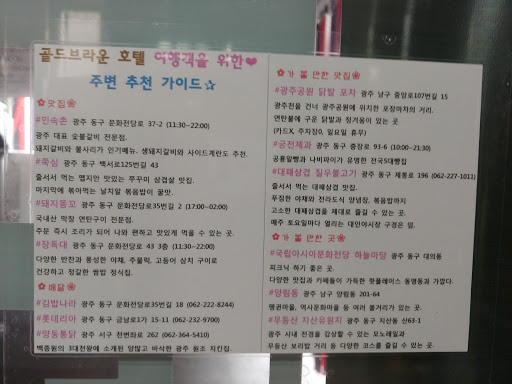 골드브라운 호텔 여행객을 위한❤
주변 추천 가이드☆
✿맛집✿
#민속촌 광주 동구 문화전당로 37-2 (11:30~22:00)
광주 대표 숯불갈비 전문점.
돼지갈비와 불사리가 인기메뉴. 생돼지갈비와 사이드계란도 추천.
#쭉심 광주 동구 백서로125번길 43
줄서서 먹는 웹지만 맛있는 쭈꾸미 삼겹살 맛집.
마지막에 볶아먹는 날치알 볶음밥이 꿀맛.
#돼지똥꼬 광주 동구 문화전당로35번길 2 (17:00~02:00)
국내산 막창 연탄구이 전문점.
주문 즉시 조리가 되어 나와 편하고 맛있게 먹을 수 있는 곳.
#장독대 광주 동구 문화전당로 43 3층 (11:30~22:00)
다양한 반찬과 풍성한 야채, 주물럭, 고등어 삼치 구이로
건강하고 정갈한 쌈밥 정식집.
✿배달✿
#김밥나라 광주 동구 문화전당로35번길 18 (062-222-8244)
#롯데리아 광주 동구 금남로1가 15-11 (062-232-9700)
#양동통닭 광주 서구 천변좌로 262 (062-364-5410)
백종원의 3대천왕에 소개된 담많고 바삭한 광주 원조 치킨집.
✿가 볼 만한 맛집✿
#광주공원 닭발 포차 광주 남구 중앙로107번길 15
광주천을 건너 광주공원에 위치한 포장마차의 거리.
연탄불에 구운 닭발과 정겨움이 있는 곳
(카드X, 주차장O, 일요일 휴무)
#궁전제과 광주 동구 충장로 93-6 (10:00~21:30)
공룡알빵과 나비파이가 유명한 전국5대빵집
#대패삼겹 질우불고기 광주 동구 제봉로 196 (062-227-1011)
줄서서 먹는 대패삼겹 맛집.
푸짐한 야채와 전라도식 양념장, 볶음밥까지
고소한 대패삼겹을 제대로 즐길 수 있는 곳.
매주 토요일마다 열리는 대인야시장 구경은 덤.
✿가 볼 만한 곳✿
#국립아시아문화전당 하늘마당 광주 동구 대의동
피크닉 하기 좋은 곳.
다양한 맛집과 카페들이 가득한 핫플레이스 동명동과 가깝다.
#양림동 광주 남구 양림동 201-64
펭귄마을, 역사문화마을 등 여러 볼거리가 있는 곳.
#무등산 지산유원지 광주 동구 지산동 산63-1
광주 시내 전경을 감상할 수 있는 모노레일과
무등산 보리밥 거리 등 다양한 코스를 즐길 수 있는 곳.